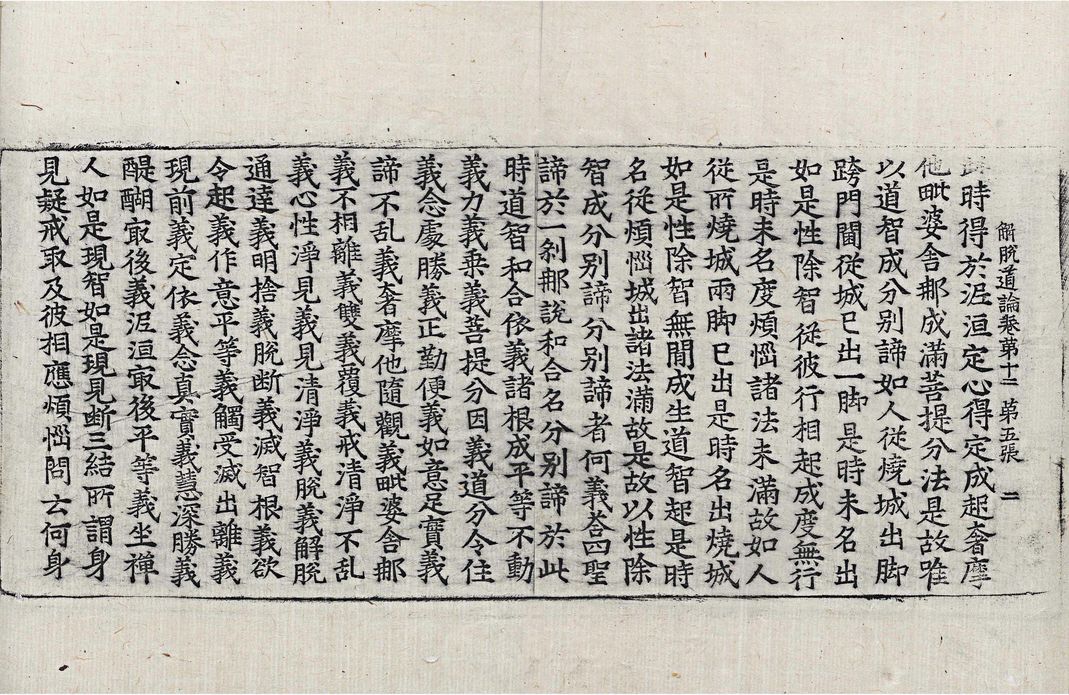 解脫道論卷第十二 第五張 二
時得於涅洹定心得定成起奢摩
他毗婆舍那成滿菩提分法是故唯
以道智成分別諦如人從燒城出脚
跨門閫從城已出一脚是時未名出
如是性除智從彼行相起成度無行
是時未名度煩惱諸法未滿故如人
從所燒城兩脚已出是時名出燒城
如是性除智無間成生道智起是時
名從煩惱城出諸法滿故是故以性除
智成分別諦分別諦者何義荅四聖
諦於一剎那說和合名分別諦於此
時道智和合依義諸根成平等不動
義力義乗義菩提分因義道分令住
義念處勝義正勤便義如意足實義
諦不乱義奢摩他隨觀義毗婆舍那
義不相離義雙義覆義戒清淨不乱
義心性淨見義見清淨義脫義解脫
通達義明捨義脫断義滅智根義欲
令起義作意平等義觸受滅出離義
現前義定依義念真實義慧深勝義
醍醐㝡後義涅洹㝡後平等義坐禪
人如是現智如是現見断三結所謂身
見疑戒取及彼相應煩惱問云何身